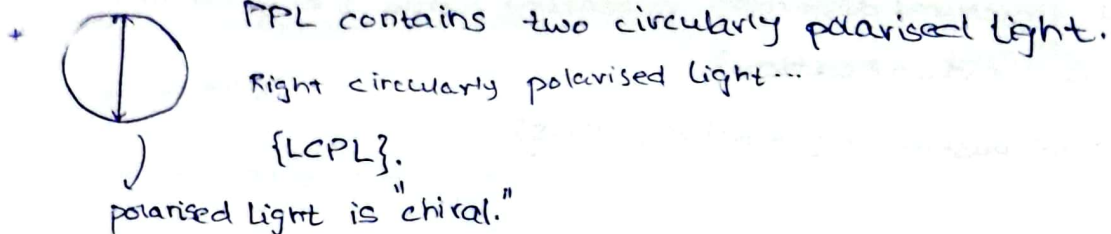 PPL contains two circularly polarised light.
Right circularly polarised light...
{LCPL}.
polarised Light is "chiral."